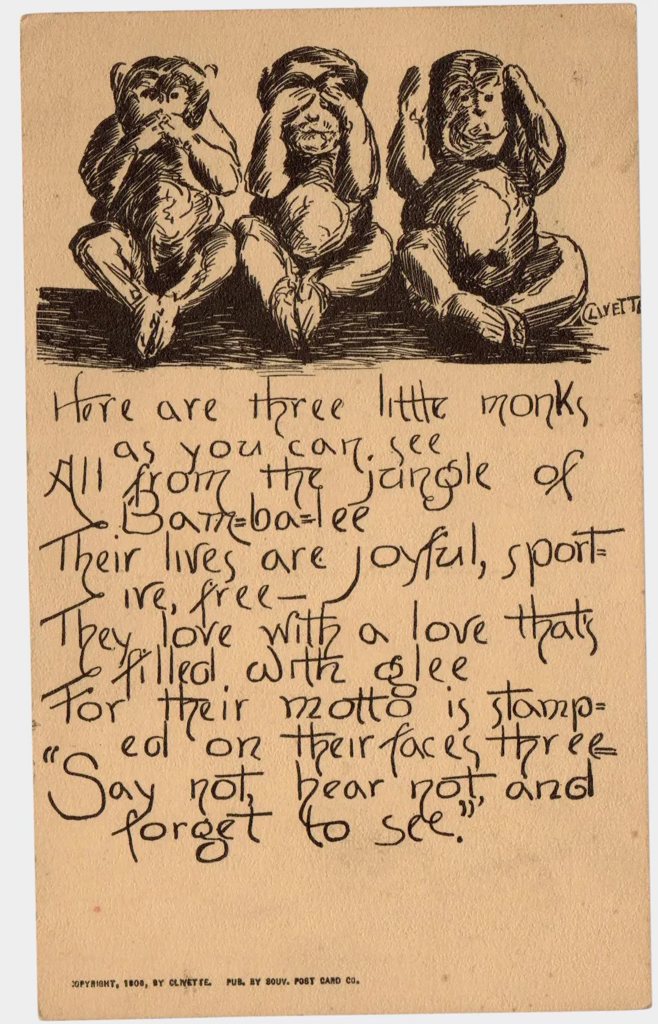 CLIVETTE
Here are three little monks
as you can see
All from the jungle of
Bam=ba=lee
Their lives are joyful, sport=
ive, free—
They love with a love that's
filled with glee
For their motto is stamp=
ed on their faces three=
"Say not, hear not, and
forget to see."
COPYRIGHT, 1906, BY CLIVETTE. PUB. BY SOUV. POST CARD CO.